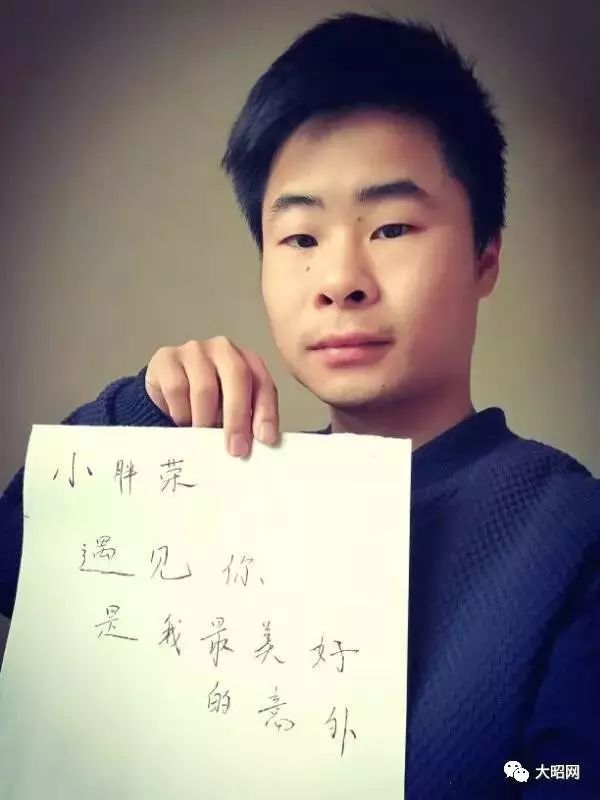 小胖荣
遇见你
是我最美好
的意外
大昭网